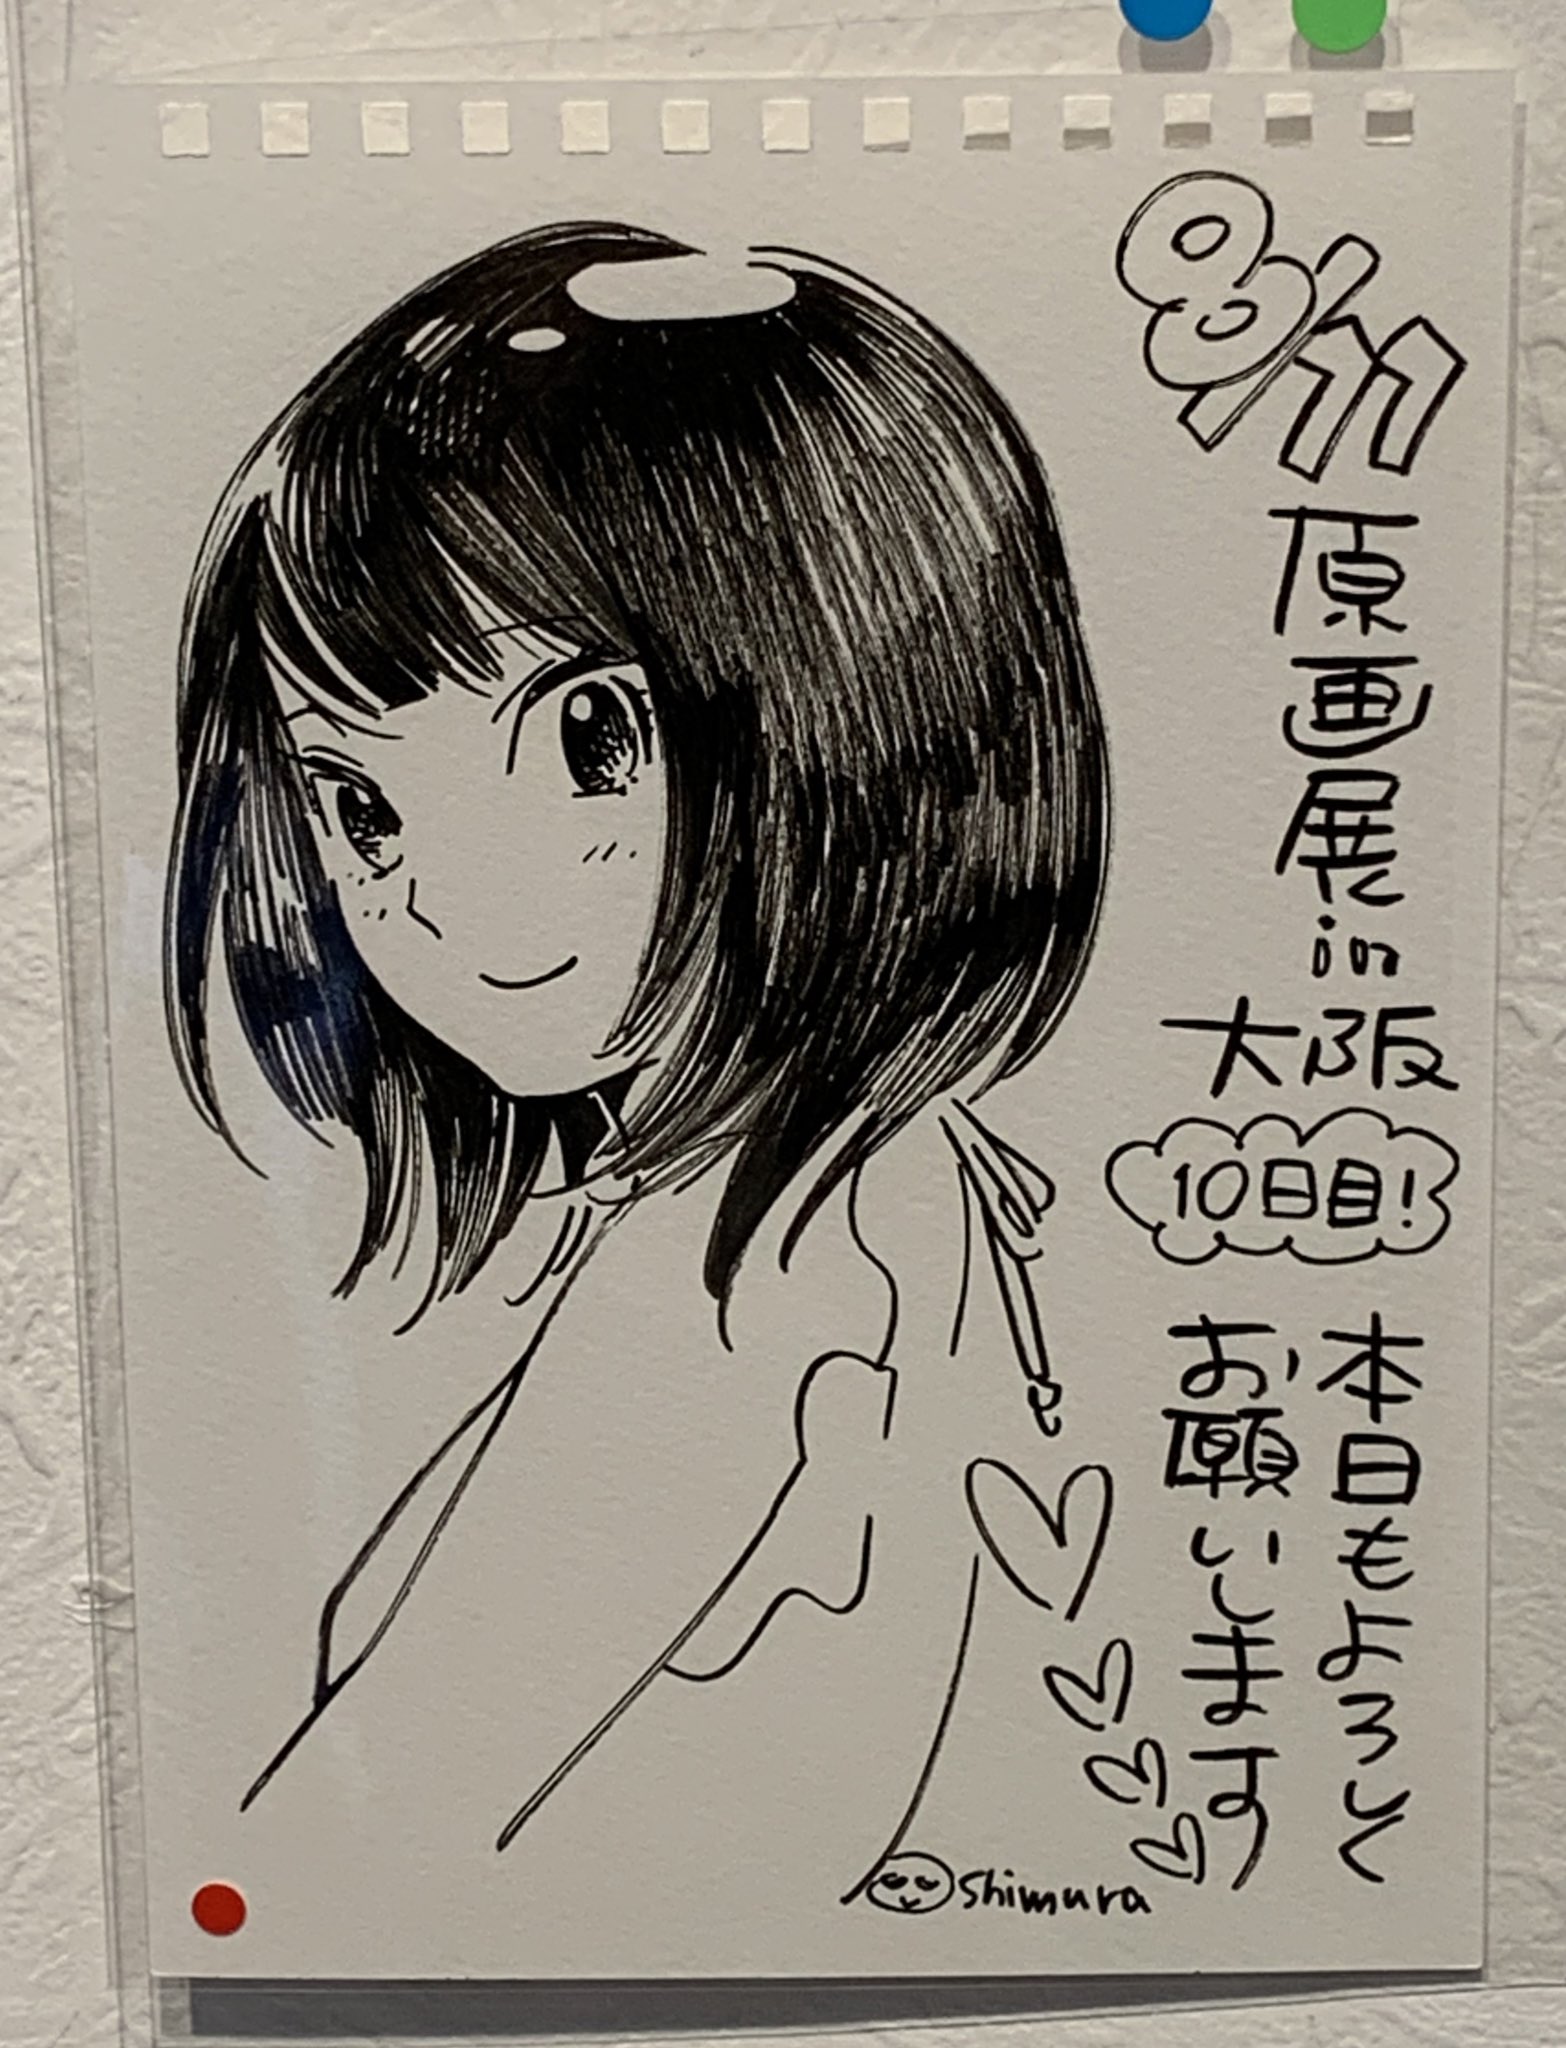 8/11
原画展in
大阪
10日目!
本日もよろしく
お願いします
shimura